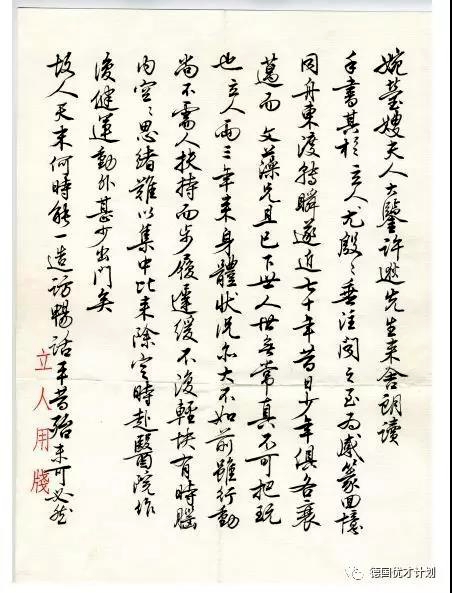 婉瑩嫂夫人大鑒許逖先生来舍朗讀
手書其於立人尤殷殷垂注聞之至為感篆回憶
同舟東渡轉瞬遂近七十年昔日少年俱各衰
邁而文藻兄且已下世人世無常真不可把玩
也立人兩三年来身體狀況亦大不如前雖行動
尚不需人扶持而步履遲緩不復輕快有時腦
内空空思緒難以集中比来除定時赴醫院作
復健運動外甚少出門矣
故人天末何時能一造訪暢話平昔殆未可必然
立人用牋
德国优才计划